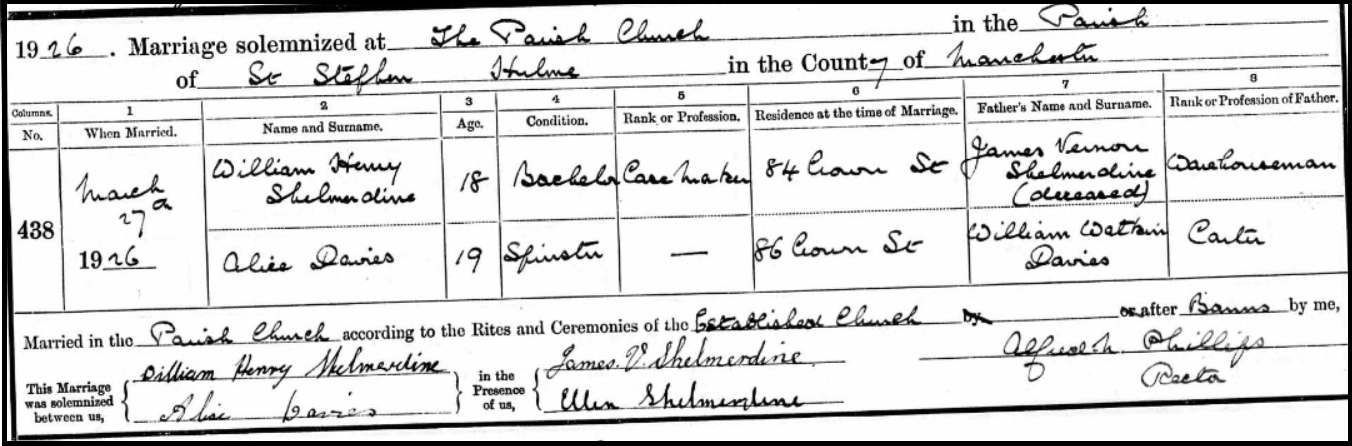 1926. Marriage solemnized at The Parish Church in the Parish
of St Stephen Hulme in the County of Manchester
Columns. 1 2 3 4 5 6 7 8
No. When Married. Name and Surname. Age. Condition. Rank or Profession. Residence at the time of Marriage. Father's Name and Surname. Rank or Profession of Father.
438
March
27
1926
William Henry
Shelmerdine
18
Bachelor
Case Maker
84 Crown St
James Vernon
Shelmerdine
(deceased)
Warehouseman
Alice Davies
19
Spinster
—
86 Crown St
William Watkin
Davies
Carter
Married in the Parish Church according to the Rites and Ceremonies of the Established Church by or after Banns by me,
This Marriage
was solemnized
between us,
William Henry Shelmerdine
Alice Davies
in the
Presence
of us,
James V. Shelmerdine
Ellen Shelmerdine
Alfred Phillips
Rector